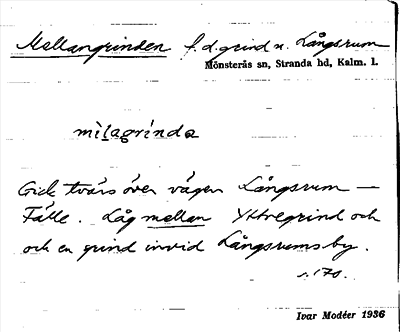 Mellangrinden f.d. grind n. Långsrum
Mönsterås sn, Stranda hd, Kalm. l.
mìlagrìnda
Gick tvärs över vägen Långsrum —
Fälle. Låg mellan Yttregrind och
och en grind invid Långsrums by.
s. 170.
Ivar Modéer 1936